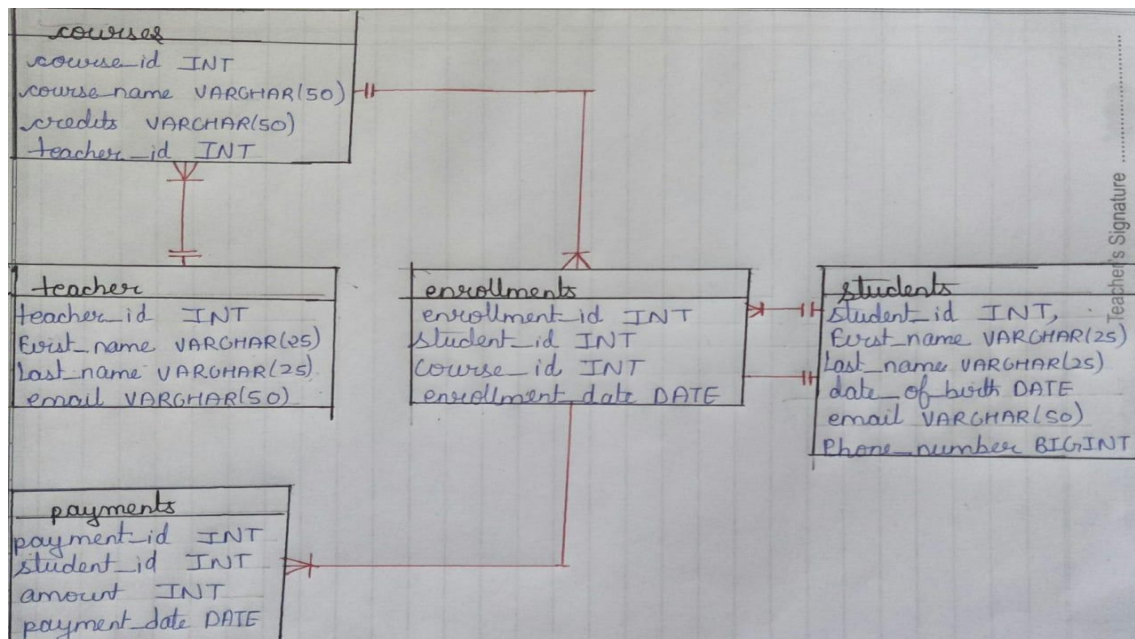 courses
course_id INT
course_name VARCHAR(50)
credits VARCHAR(50)
teacher_id INT
teacher
teacher_id INT
First_name VARCHAR(25)
Last_name VARCHAR(25)
email VARCHAR(50)
enrollments
enrollment_id INT
student_id INT
course_id INT
enrollment_date DATE
students
student_id INT,
First_name VARCHAR(25)
Last_name VARCHAR(25)
date_of_birth DATE
email VARCHAR(50)
Phone_number BIGINT
payments
payment_id INT
student_id INT
amount INT
payment_date DATE
Teacher's Signature ....................